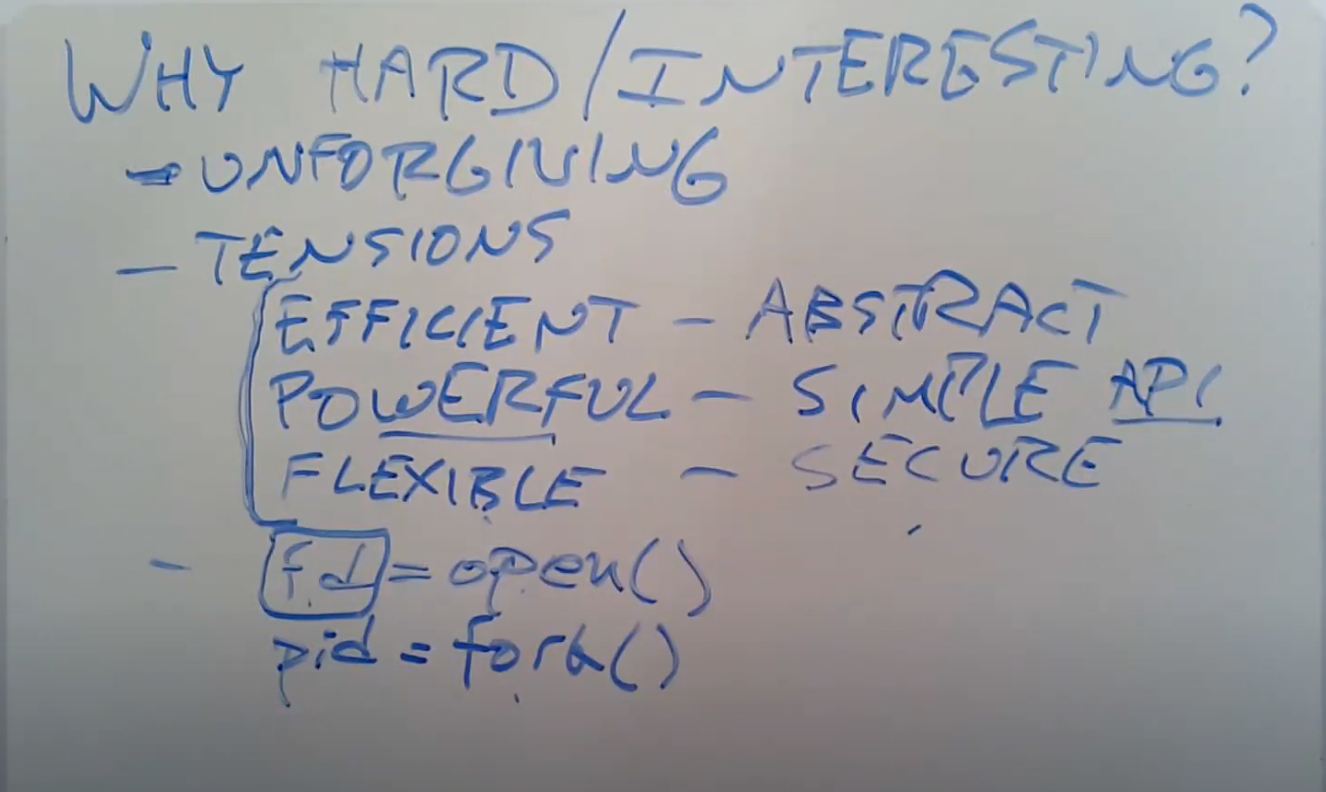 WHY HARD/INTERESTING?
- UNFORGIVING
- TENSIONS
EFFICIENT - ABSTRACT
POWERFUL - SIMPLE API
FLEXIBLE - SECURE
- fd = open()
pid = fork()